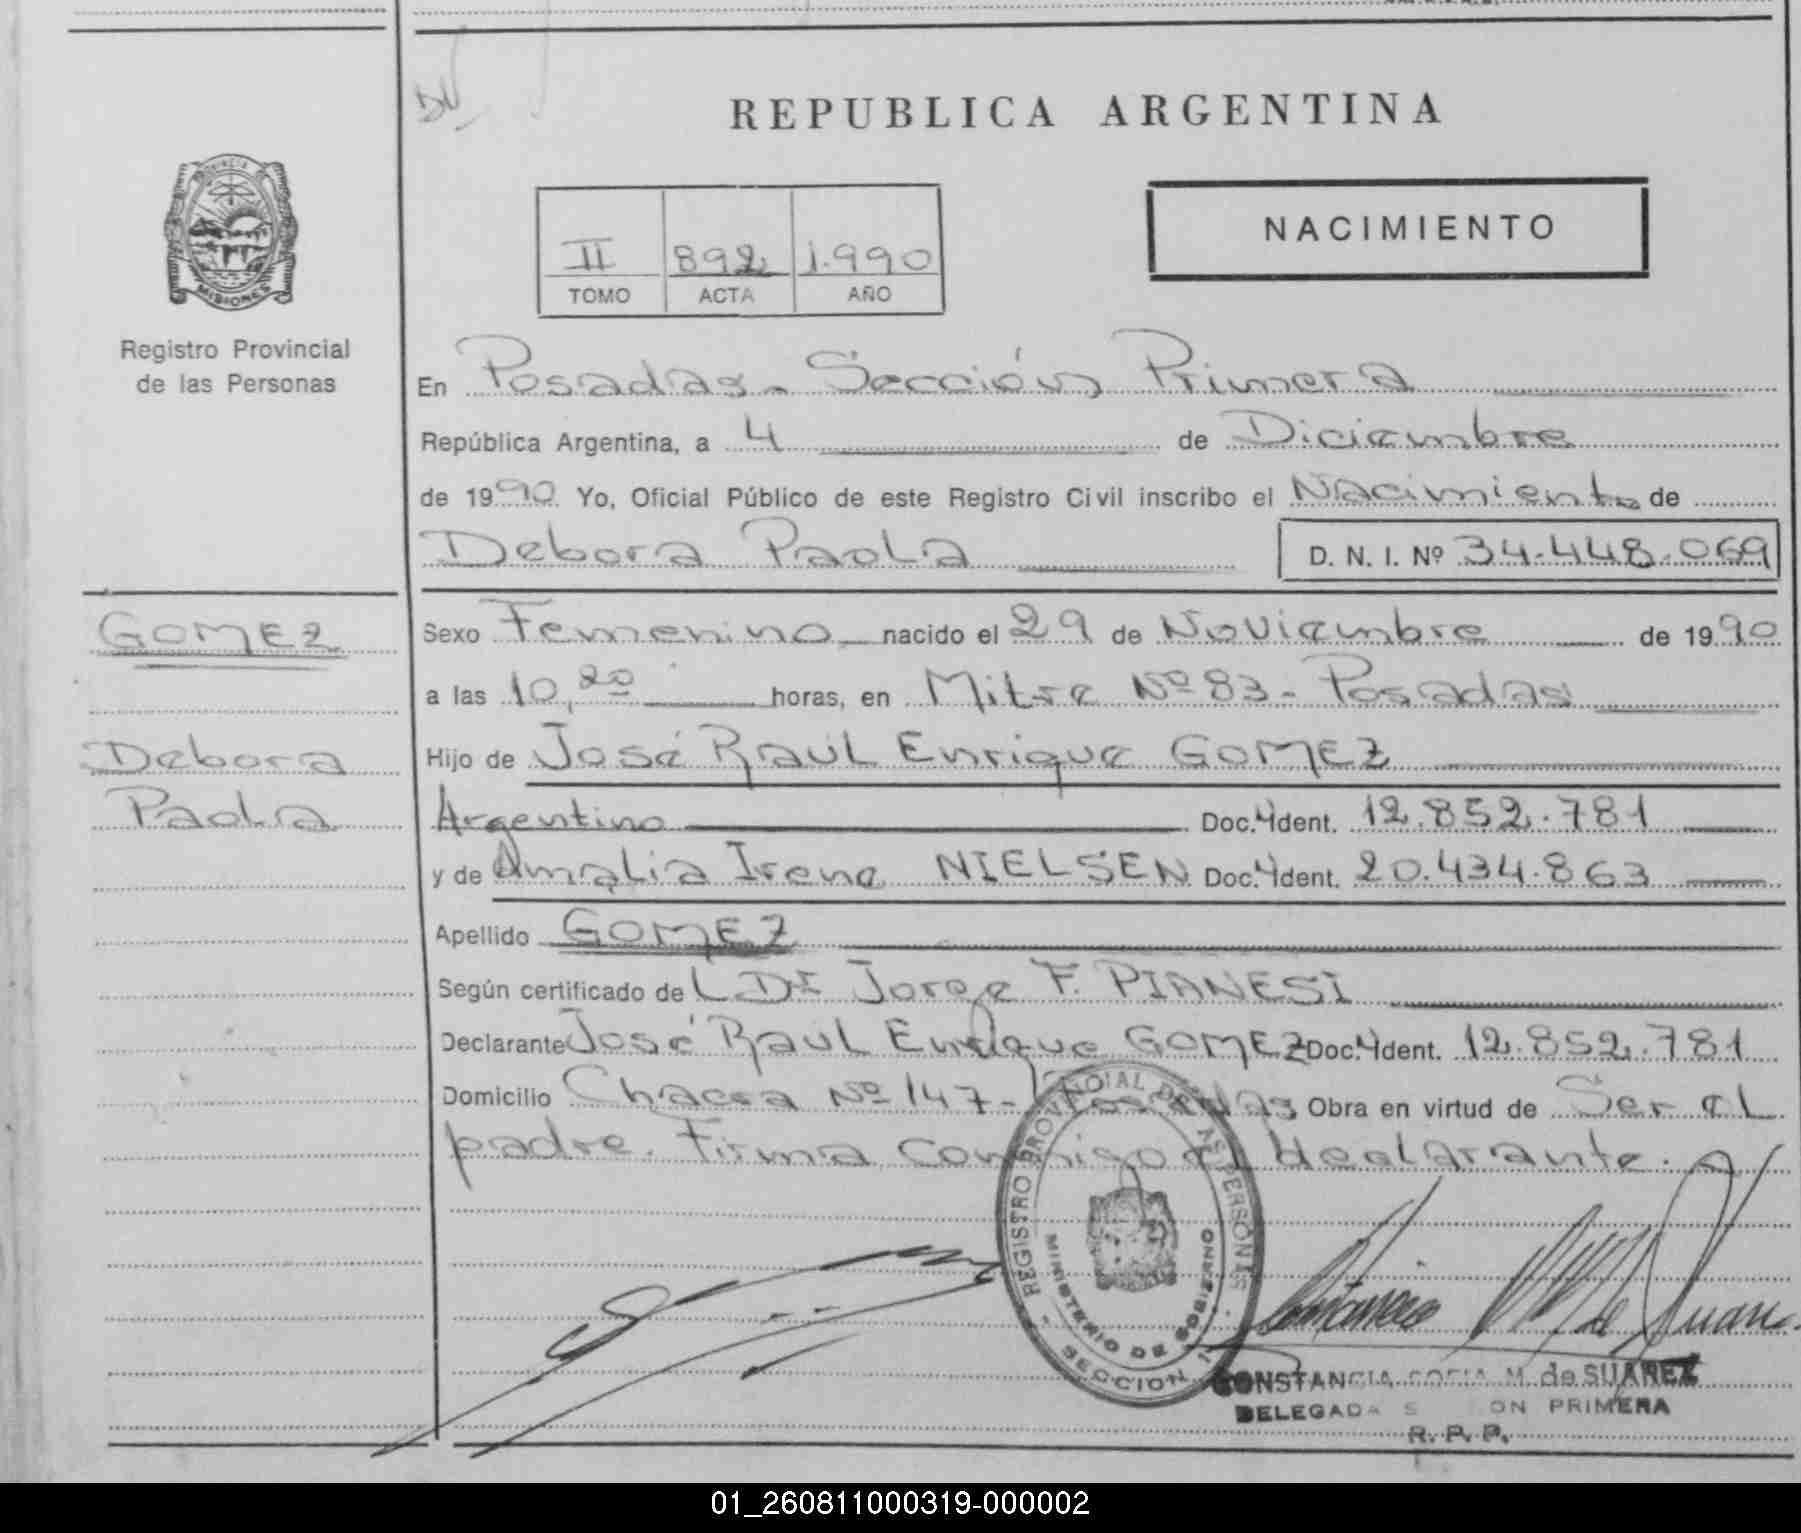 DV
REPUBLICA ARGENTINA
PROVINCIA DE
MISIONES
Registro Provincial
de las Personas
II 892 1.990
TOMO ACTA AÑO
NACIMIENTO
En Posadas - Sección Primera
República Argentina, a 4 de Diciembre
de 1990 Yo, Oficial Público de este Registro Civil inscribo el Nacimiento de
Debora Paola D. N. I. Nº 34.448.069
GOMEZ
Debora
Paola
Sexo Femenino nacido el 29 de Noviembre de 1990
a las 10,20 horas, en Mitre Nº 83 - Posadas
Hijo de José Raúl Enrique GOMEZ
Argentino Doc. Ident. 12.852.781
y de Amalia Irene NIELSEN Doc. Ident. 20.434.863
Apellido GOMEZ
Según certificado de L Dr Jorge F. PIANESI
Declarante José Raúl Enrique GOMEZ Doc. Ident. 12.852.781
Domicilio Chacra Nº 147 - Posadas Obra en virtud de Ser el
padre. Firma conmigo el declarante.
REGISTRO PROVINCIAL DE LAS PERSONAS
MINISTERIO DE GOBIERNO
SECCION 1
CONSTANCIA SOFIA M. de SUAREZ
DELEGADA SECCION PRIMERA
R. P. P.
01_260811000319-000002